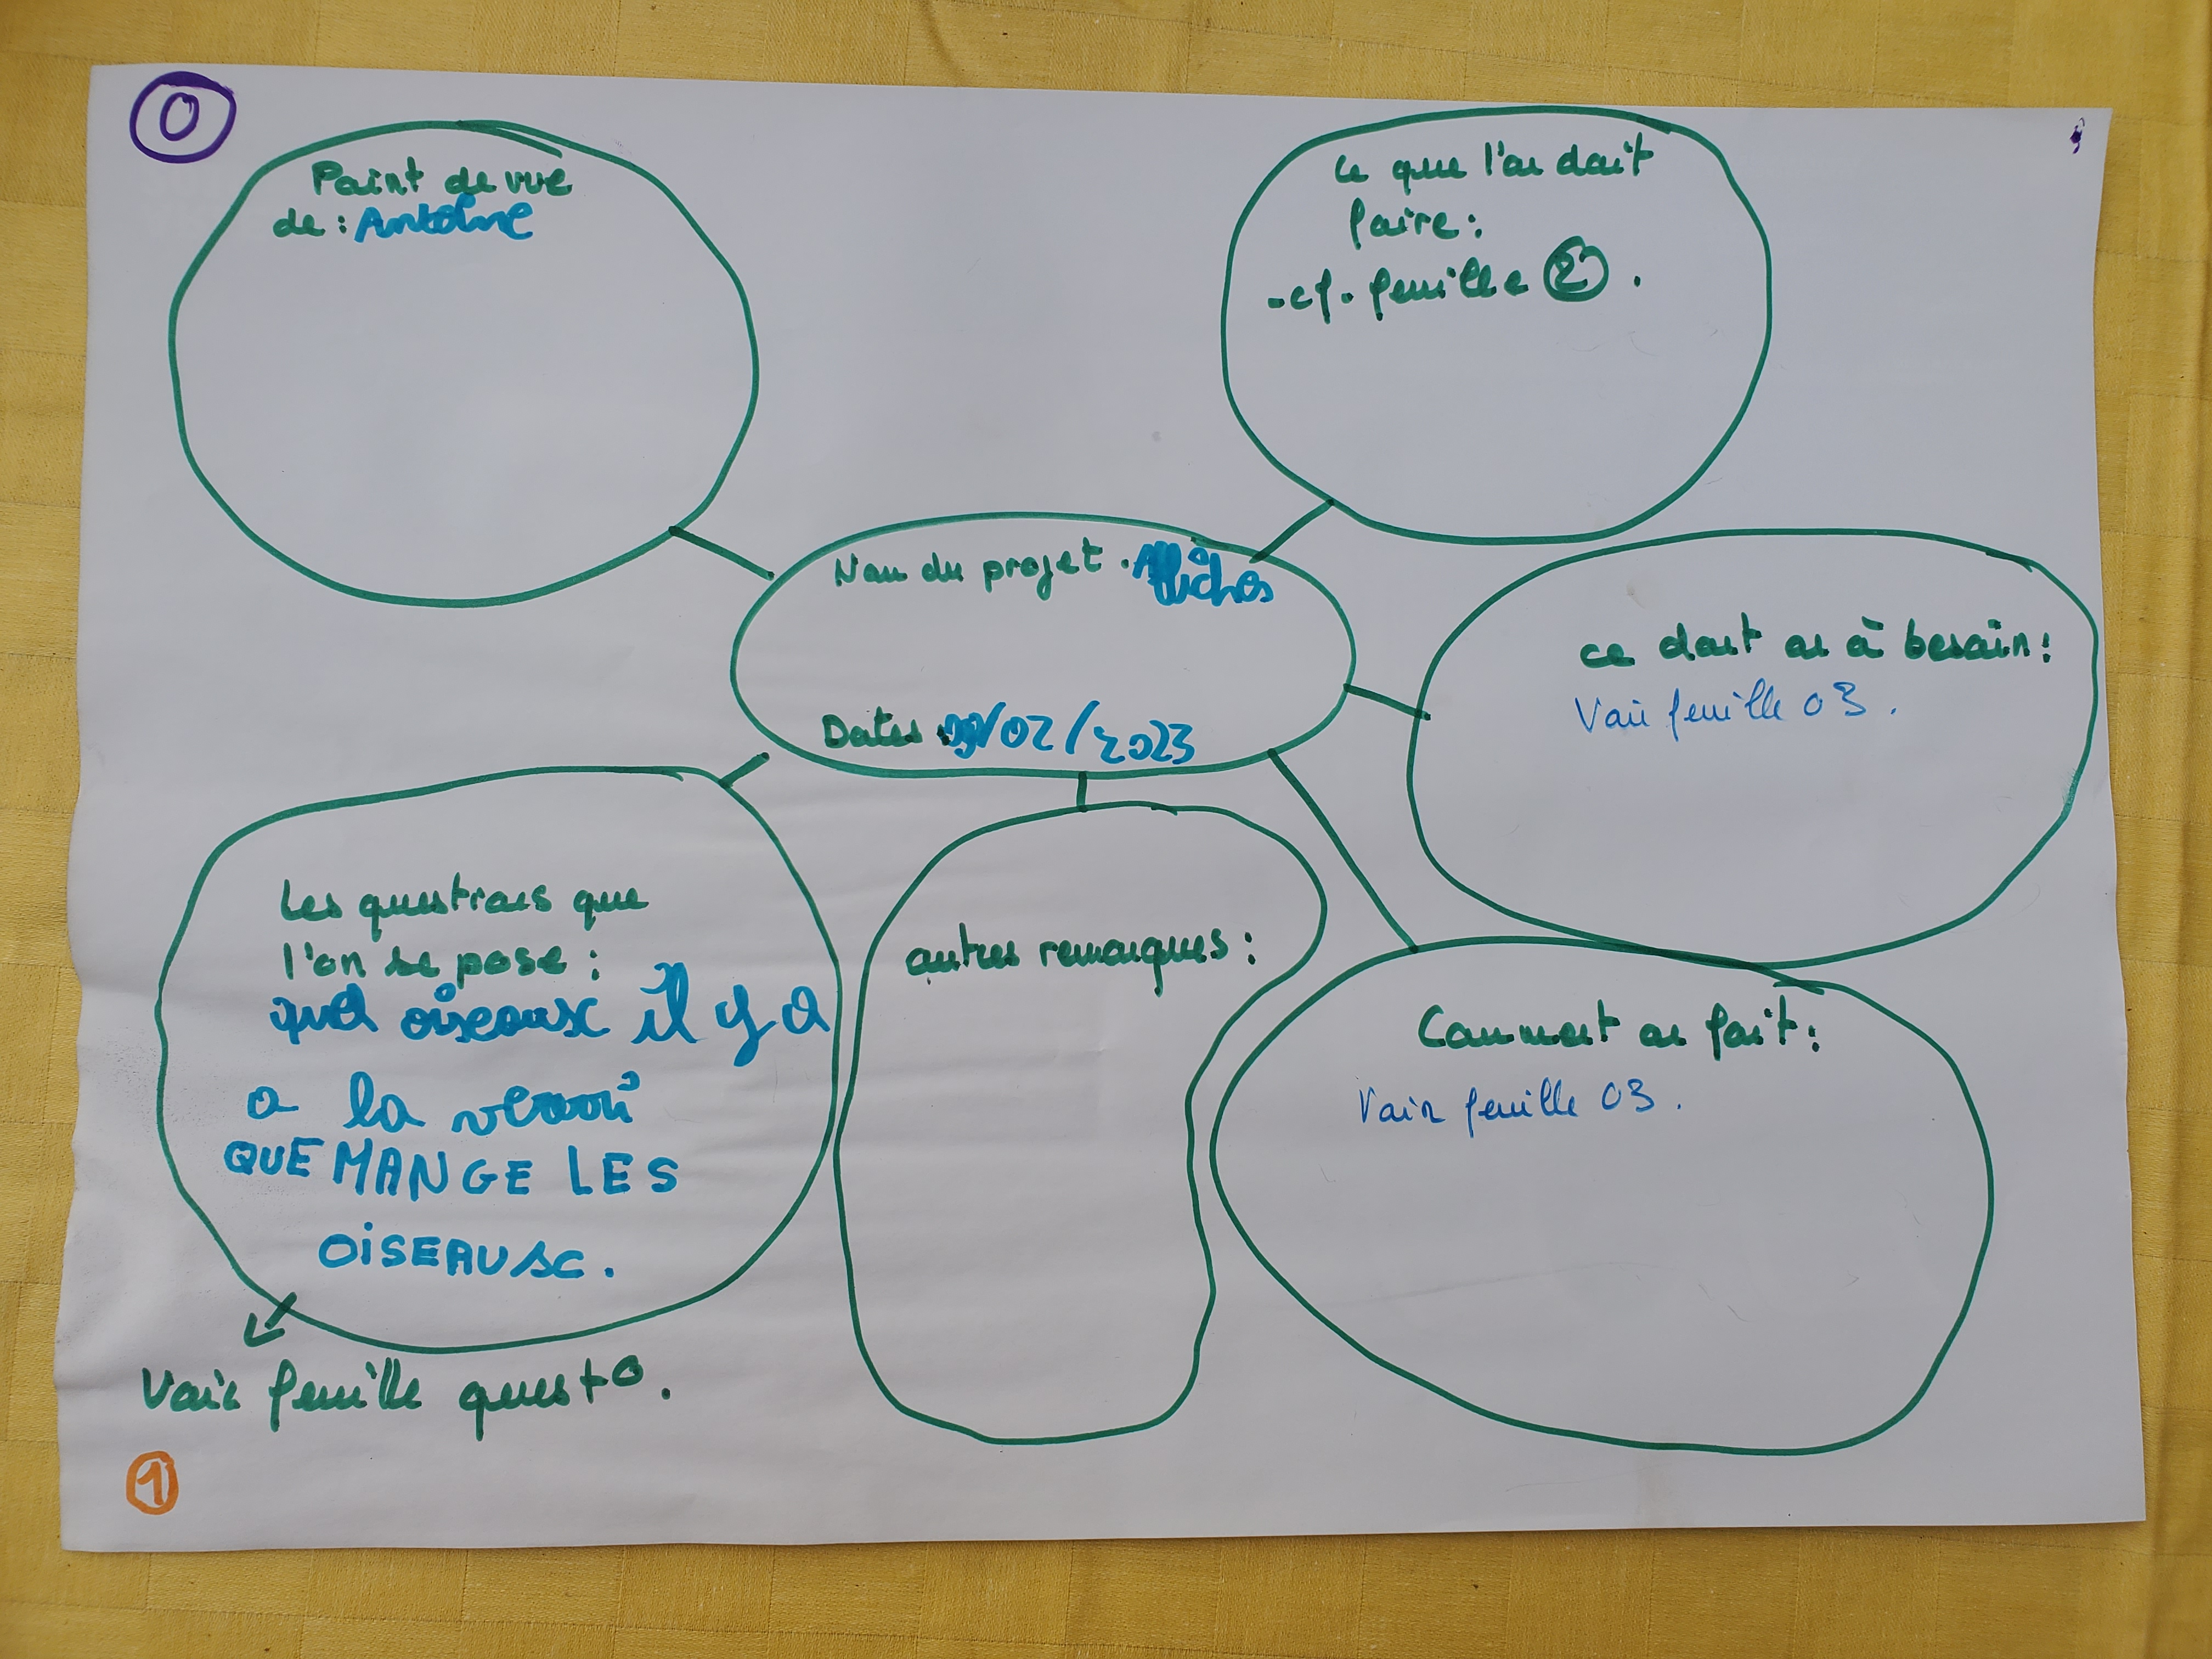 0
Point de vue
de : Antoine
Ce que l'on doit
faire :
- cf. feuille 2 .
Nom du projet : Affiches
Dates : 09/02/2023
ce dont on à besoin :
Voir feuille 03 .
Les questions que
l'on se pose :
quel oiseausc il y a
a la
QUE MANGE LES
OiSEAUSC .
Voir feuille quest° .
autres remarques :
Comment on fait :
Voir feuille 03 .
1